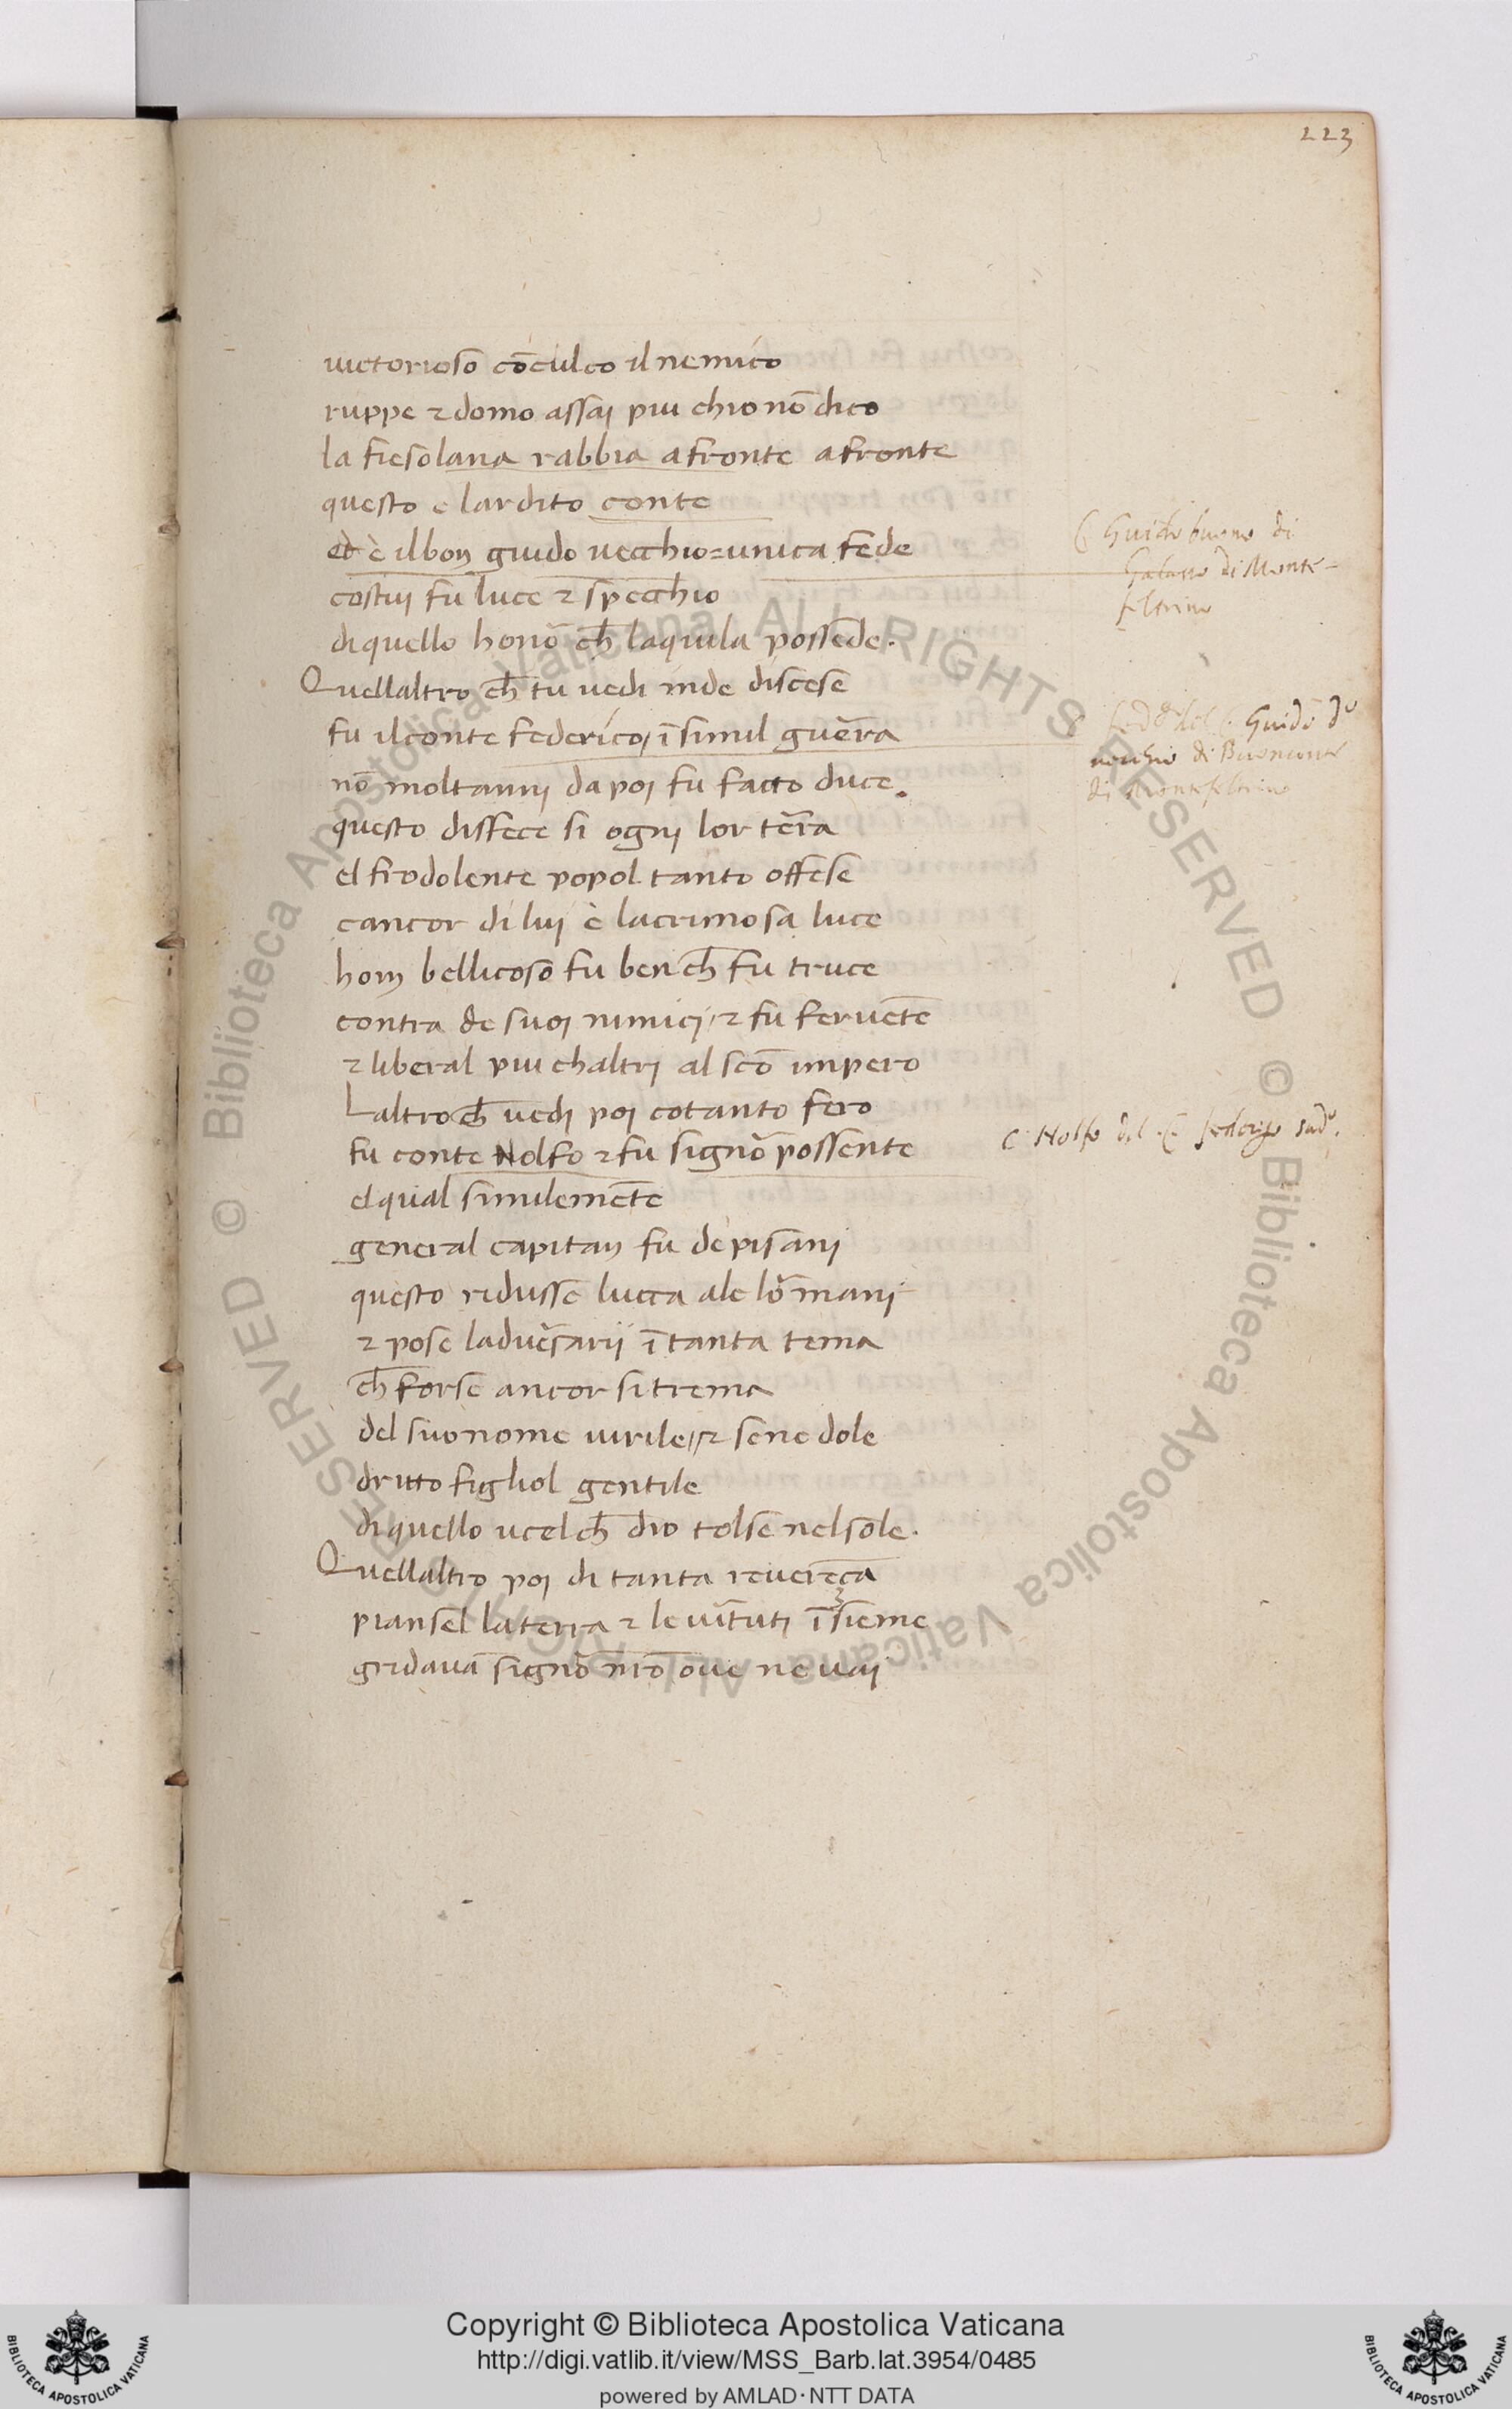 223
uictorioso cōculco il nemico
ruppe ⁊ domo assaj piu chio nō dico
la fiesolana rabbia afronte afronte
questo e lardito conte
ed è il bon guido uecchio = unica fede
costuj fu luce ⁊ specchio
di quello honō ch̄ laquila possede.
Quellaltro ch̄ tu uedi inde discese
fu il conte federico, ī simil guerra
nō moltannj da poj fu facto duce.
questo disfece si ognj lor terra
el frodolente popol tanto offese
cancor di luj è lacrimosa luce
hom bellicoso fu ben ch̄ fu truce
contra de suoj nimicj, ⁊ fu feruēte
⁊ liberal piu chaltrj al scō impero
Laltro ch̄ uedj poj cotanto fero
fu conte Nolfo ⁊ fu signō possente
el qual similemēte
general capitan fu de pisanj
questo ridusse lucca ale lor manj
⁊ pose laduersarij ī tanta tema
ch̄ forse ancor si trema
del suo nome uirile, ⁊ sene dole
dritto figliol gentile
di quello ucel ch̄ dio tolse nel sole.
Quellaltro poj di tanta reuerēça
piansel la terra ⁊ le uirtutj īsieme
gridauā signō mio oue ne uaj
C Guido buono di
Galasso di Monte-
feltrino
C fed.º del C. Guido d.º
uecchio di Buonconte
di Montefeltrino
C. Nolfo del C. federigo sud.º
Copyright © Biblioteca Apostolica Vaticana
http://digi.vatlib.it/view/MSS_Barb.lat.3954/0485
powered by AMLAD·NTT DATA
BIBLIOTECA APOSTOLICA VATICANA
BIBLIOTECA APOSTOLICA VATICANA
© Biblioteca Apostolica Vaticana ALL RIGHTS RESERVED
© Biblioteca Apostolica Vaticana ALL RIGHTS RESERVED